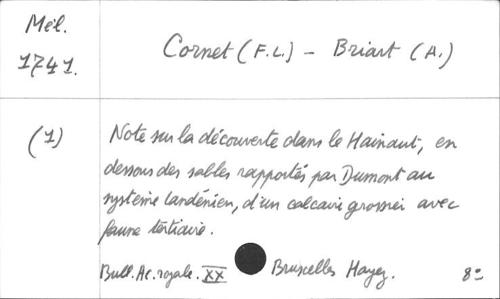 Mél.
1741.
Cornet (F.L.) - Briart (A.)
(1)
Note sur la découverte dans le Hainaut, en
dessous des sables rapportés par Dumont au
système landénien, d'un calcaire grossier avec
faune tertiaire.
Bull. Ac. royale. XX Bruxelles Hayez. 8º